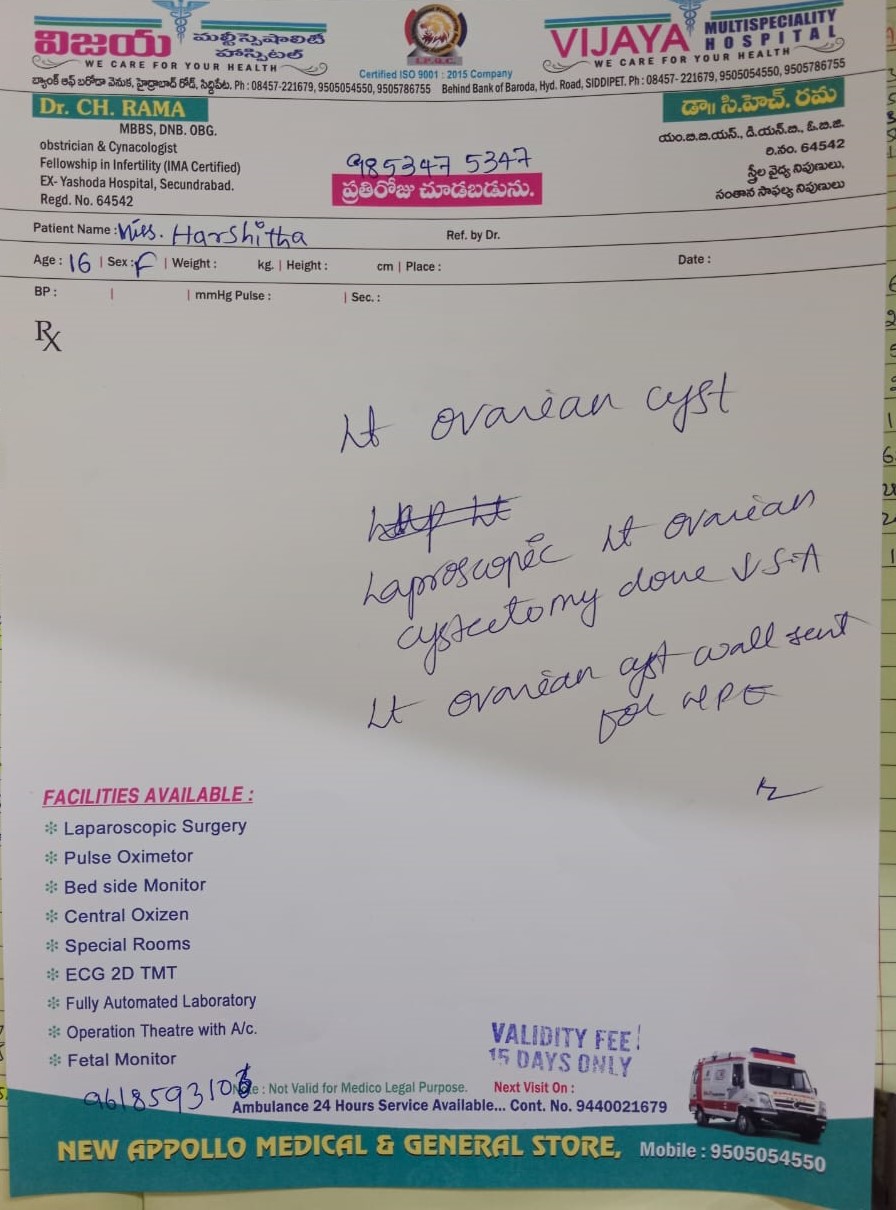 విజయ మల్టీస్పెషాలిటీ హాస్పిటల్
WE CARE FOR YOUR HEALTH
I.P.Q.C.
Certified ISO 9001 : 2015 Company
VIJAYA MULTISPECIALITY HOSPITAL
WE CARE FOR YOUR HEALTH
బ్యాంక్ ఆఫ్ బరోడా వెనుక, హైద్రాబాద్ రోడ్, సిద్దిపేట. Ph : 08457-221679, 9505054550, 9505786755 Behind Bank of Baroda, Hyd. Road, SIDDIPET. Ph : 08457- 221679, 9505054550, 9505786755
Dr. CH. RAMA
MBBS, DNB. OBG.
obstrician & Cynacologist
Fellowship in Infertility (IMA Certified)
EX- Yashoda Hospital, Secundrabad.
Regd. No. 64542
985347 5347
ప్రతిరోజు చూడబడును.
డా॥ సి.హెచ్. రమ
యం.బి.బి.యస్., డి.యన్.బి., ఓ.బి.జి.
రి.నం. 64542
స్త్రీల వైద్య నిపుణులు,
సంతాన సాఫల్య నిపుణులు
Patient Name : Miss. Harshitha Ref. by Dr.
Age : 16 | Sex : F | Weight : kg. | Height : cm | Place : Date :
BP : | | mmHg Pulse : | Sec. :
Rx
Lt ovarian cyst
Lap Lt
Laproscopic Lt ovarian
cystectomy done ↓ S.A
Lt ovarian cyst wall sent
for HPE
FACILITIES AVAILABLE :
Laparoscopic Surgery
Pulse Oximetor
Bed side Monitor
Central Oxizen
Special Rooms
ECG 2D TMT
Fully Automated Laboratory
Operation Theatre with A/c.
Fetal Monitor
VALIDITY FEE!
15 DAYS ONLY
Note : Not Valid for Medico Legal Purpose. Next Visit On :
Ambulance 24 Hours Service Available... Cont. No. 9440021679
NEW APPOLLO MEDICAL & GENERAL STORE, Mobile : 9505054550